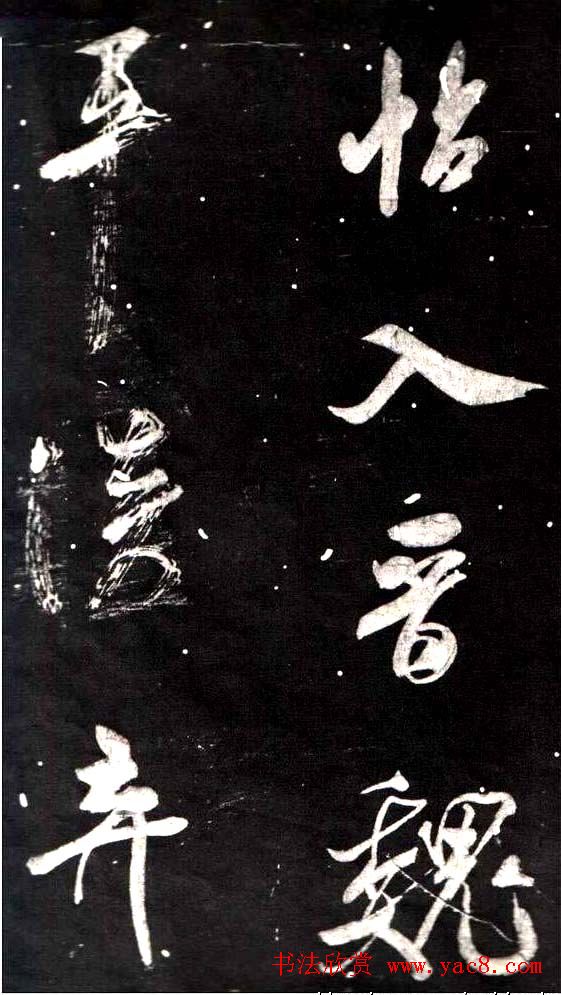 帖入晋魏
平淡弃
书法欣赏 www.yac8.com